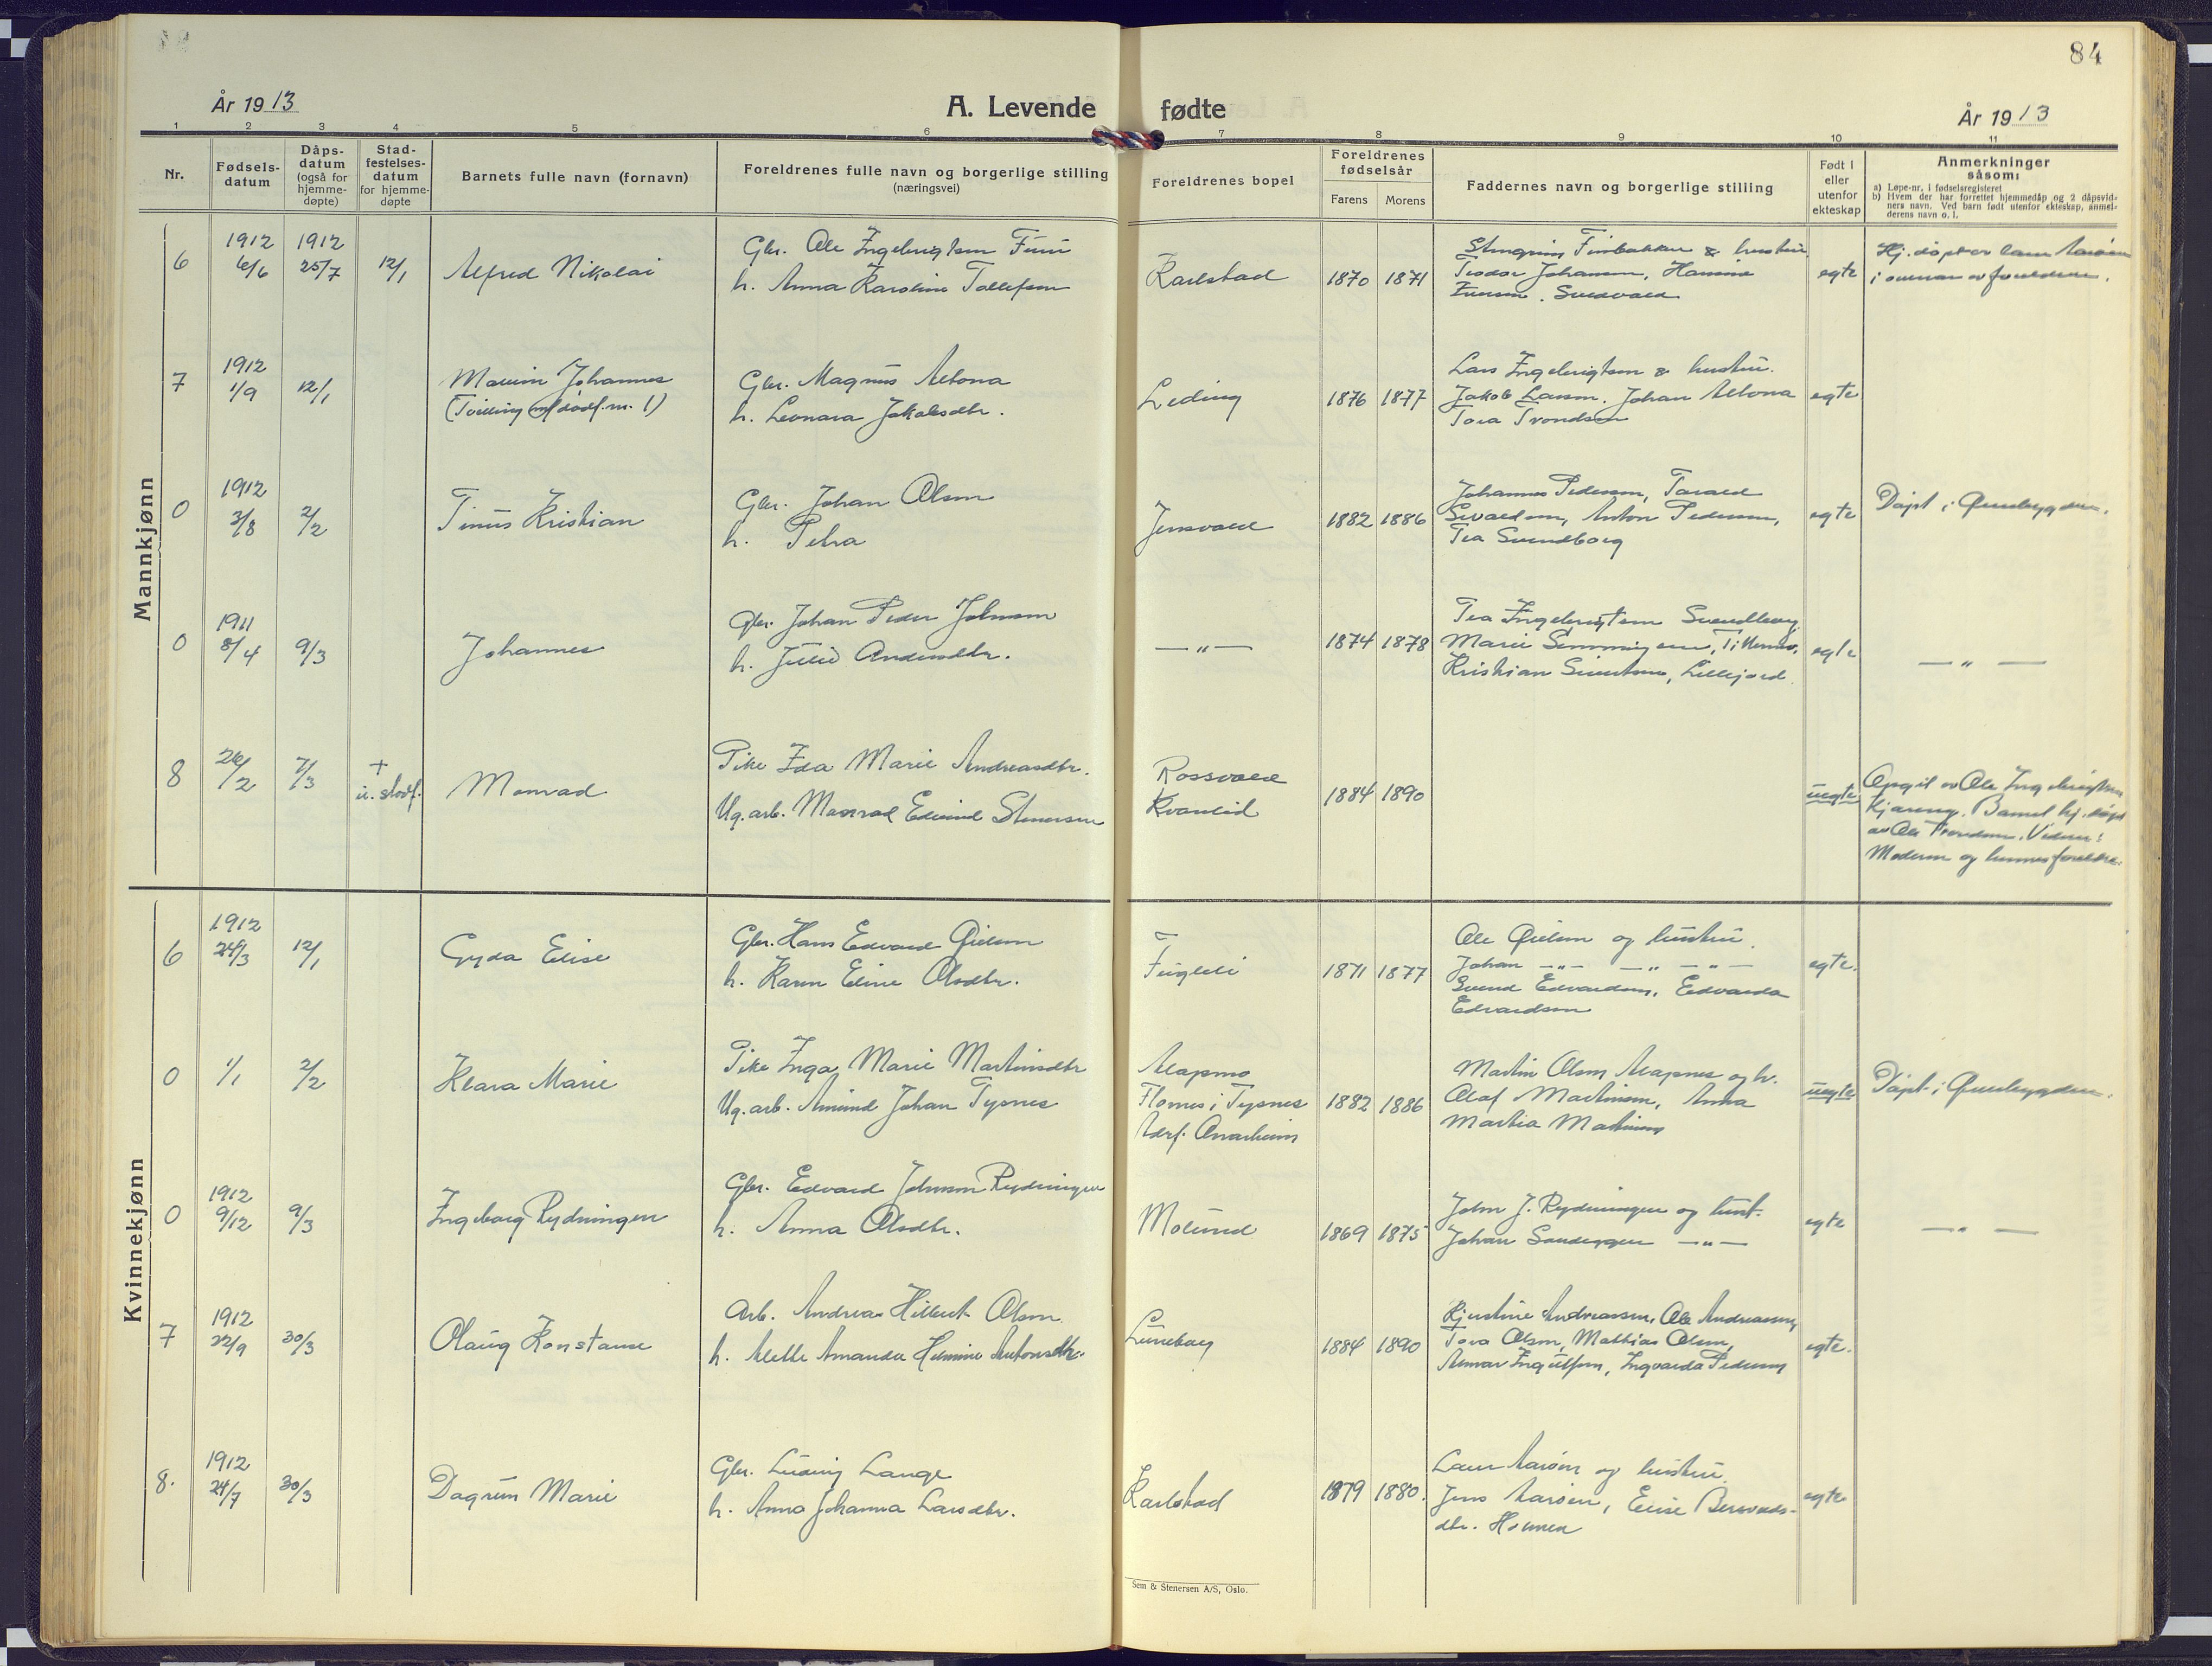 84
År 1913
A. Levende fødte
År 1913
1 2 3 4 5 6 7 8 9 10 11
Nr.
Fødsels-
datum
Dåps-
datum
(også for
hjemme-
døpte)
Stad-
festelses-
datum
for hjemme-
døpte
Barnets fulle navn (fornavn)
Foreldrenes fulle navn og borgerlige stilling
(næringsvei)
Foreldrenes bopel
Foreldrenes
fødselsår
Farens Morens
Faddernes navn og borgerlige stilling
Født i
eller
utenfor
ekteskap
Anmerkninger
såsom:
a) Løpe-nr. i fødselsregisteret
b) Hvem der har forrettet hjemmedåp og 2 dåpsvid-
ners navn. Ved barn født utenfor ekteskap, anmel-
derens navn o. l.
Mannkjønn
6
1912
6/6
1912
25/7
12/1
Alfred Nikolai
Gbr. Ole Ingebrigtsen
h. Anna Karoline Tollefsen
Karlstad
1870 1871
& hustru
Teodor Johansen, Hanna
egte
Hj. døpt av
7
1912
1/9
12/1
Johannes
(Tvilling m/dødf. nr. 1)
Gbr. Magnus Altona
h. Leonara Jakobsdtr.
Leding
1876 1877
Lars Ingebrigtsen & hustru.
Jakob Larsen. Johan Altona
Tora Trondsen
egte
0
1912
3/8
2/2
Tinus Kristian
Gbr. Johan Olsen
h. Petra
Jensvold
1882 1886
Johannes Pedersen,
Anton Pedersen,
Tea Svendborg
egte
Døpt i Øverbygden.
0
1911
8/4
9/3
Johannes
Gbr. Johan Peder Johnsen
h. Julie
— " —
1874 1878
Tea Ingebrigtsen Svendborg
Marie
Kristian Sivertsen, Lillejord.
egte
— " —
8
26/2
7/3
+
u. stadf.
Monrad
Pike Ida Marie Andreasdtr.
Ug. arb. Monrad Edvind Stenersen
Rossvold
Kvanlid
1884 1890
uegte
Opgit av Ole Ingebrigtsen
Barnet hj. døpt
av Ole
Moderen og hennes foreldre.
Kvinnekjønn
6
1912
24/3
12/1
Gyda Elise
Gbr. Hans Edvard
h. Karen Eline Olsdtr.
Fuglli
1871 1877
Ole og hustru.
Johan — " — — " — " —
Svend Edvardsen, Edvarda
Edvardsen
egte.
0
1/1
2/2
Klara Marie
Pike Inga Marie Martinsdtr
Ug. arb. Amund Johan Tysnes
Alapmo
Flornes i Tysnes
1882 1886
Martin Olsen Alapnes og h.
Olaf Martinsen, Anna
Martia Martinsen
uegte
Døpt i Øverbygden.
0
1912
9/12
9/3
Ingeborg Rydningen
Gbr. Edvard Johnsen Rydningen
h. Anna Olsdtr.
Molund
1869 1875
John J. Rydningen og hust.
Johan — " —
egte
— " —
7
1912
22/9
30/3
Olaug Konstanse
Arb. Andreas Hilbert Olsen
h. Alette Amanda Hermine Antonsdtr.
Luneborg
1884 1890
Kjerstine Andreassen, Ole Andreassen,
Tora Olsen, Mathias Olsen,
Ingvarda Pedersen
egte.
8.
1912
24/7
30/3
Dagrun Marie
Gbr. Ludvig Lange
h. Anna Johanna Larsdtr.
Karlstad
1879 1880.
og hustru.
Jens Elise
dtr. Holmen
egte
Sem & Stenersen A/S, Oslo.